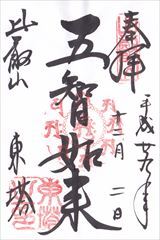 奉拝
平成廿九年
十二月二日
五智如来
比叡山
東塔